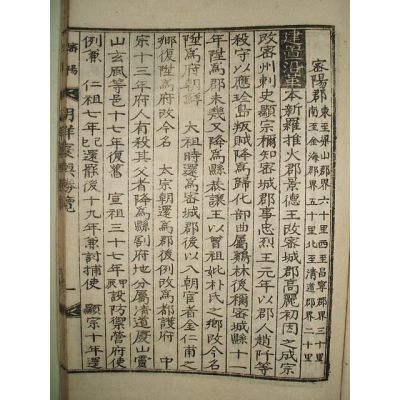 密陽郡
東至山郡界六十里西至昌寧郡界三十里
南至金海郡界五十里北至清道郡界二十里
建置沿革 本新羅推火郡景德王改密城郡高麗初因之成宗
改密州刺史顯宗稱知密城郡事忠烈王元年以郡人趙阡等
殺守以應珍島叛賊降爲歸化部曲屬鷄林後稱密城縣十一
年陞爲郡未幾又降爲縣恭讓王以曾祖妣朴氏之鄕改今名
陞爲府朝鮮 太祖時還爲密城郡後以入朝宦者金仁甫之
鄕復陞爲府改今名 太宗朝還爲郡後例改爲都護府 中
宗十三年府人有殺其父者降爲縣割府地分屬清道慶山靈
山玄風等邑十七年復舊 宣祖三十七年甲辰設防禦營府使
例兼 仁祖七年己巳還罷後十九年兼討捕使 顯宗十年還
密陽
朝鮮寰輿勝覽
一